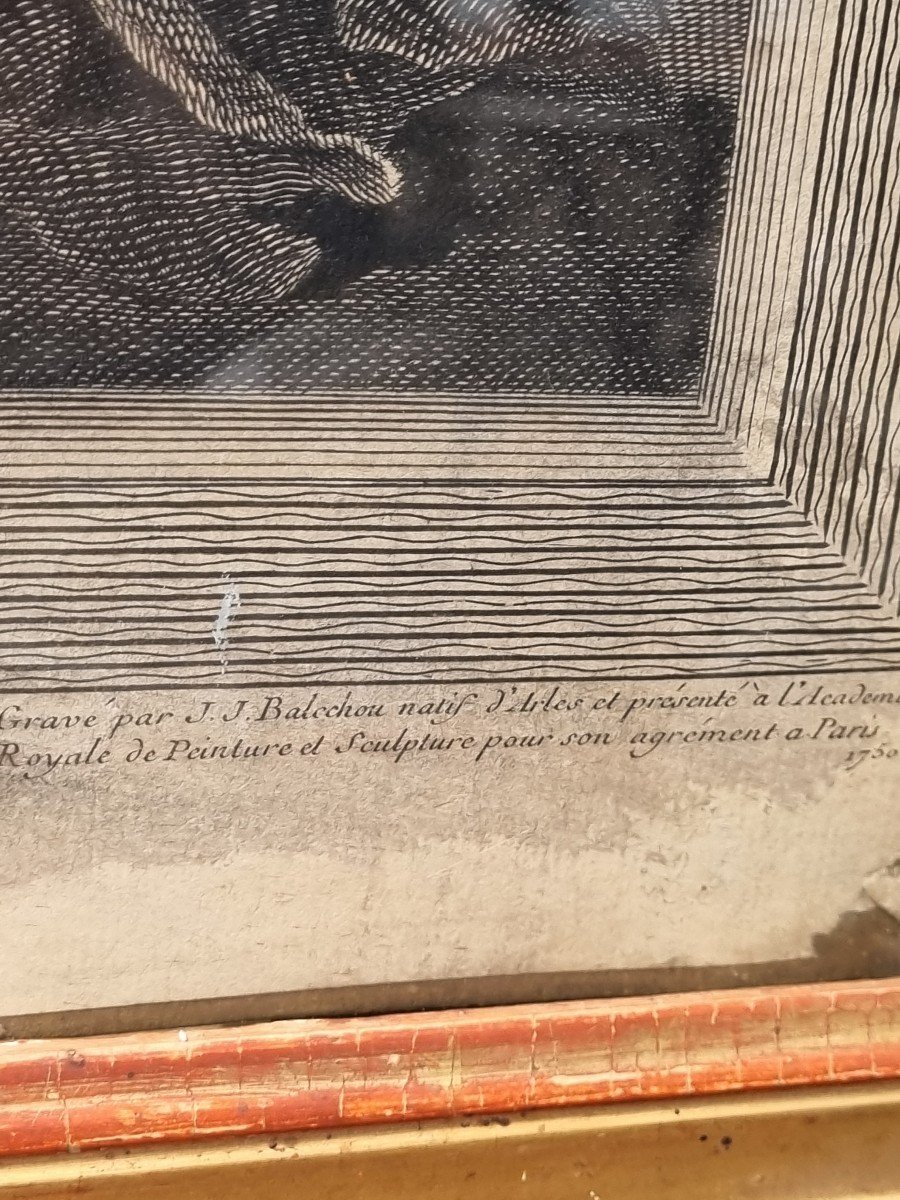 Gravé par J. J. Balechou natif d'Arles et présenté à l'Academi
Royale de Peinture et Sculpture pour son agrément a Paris
1750